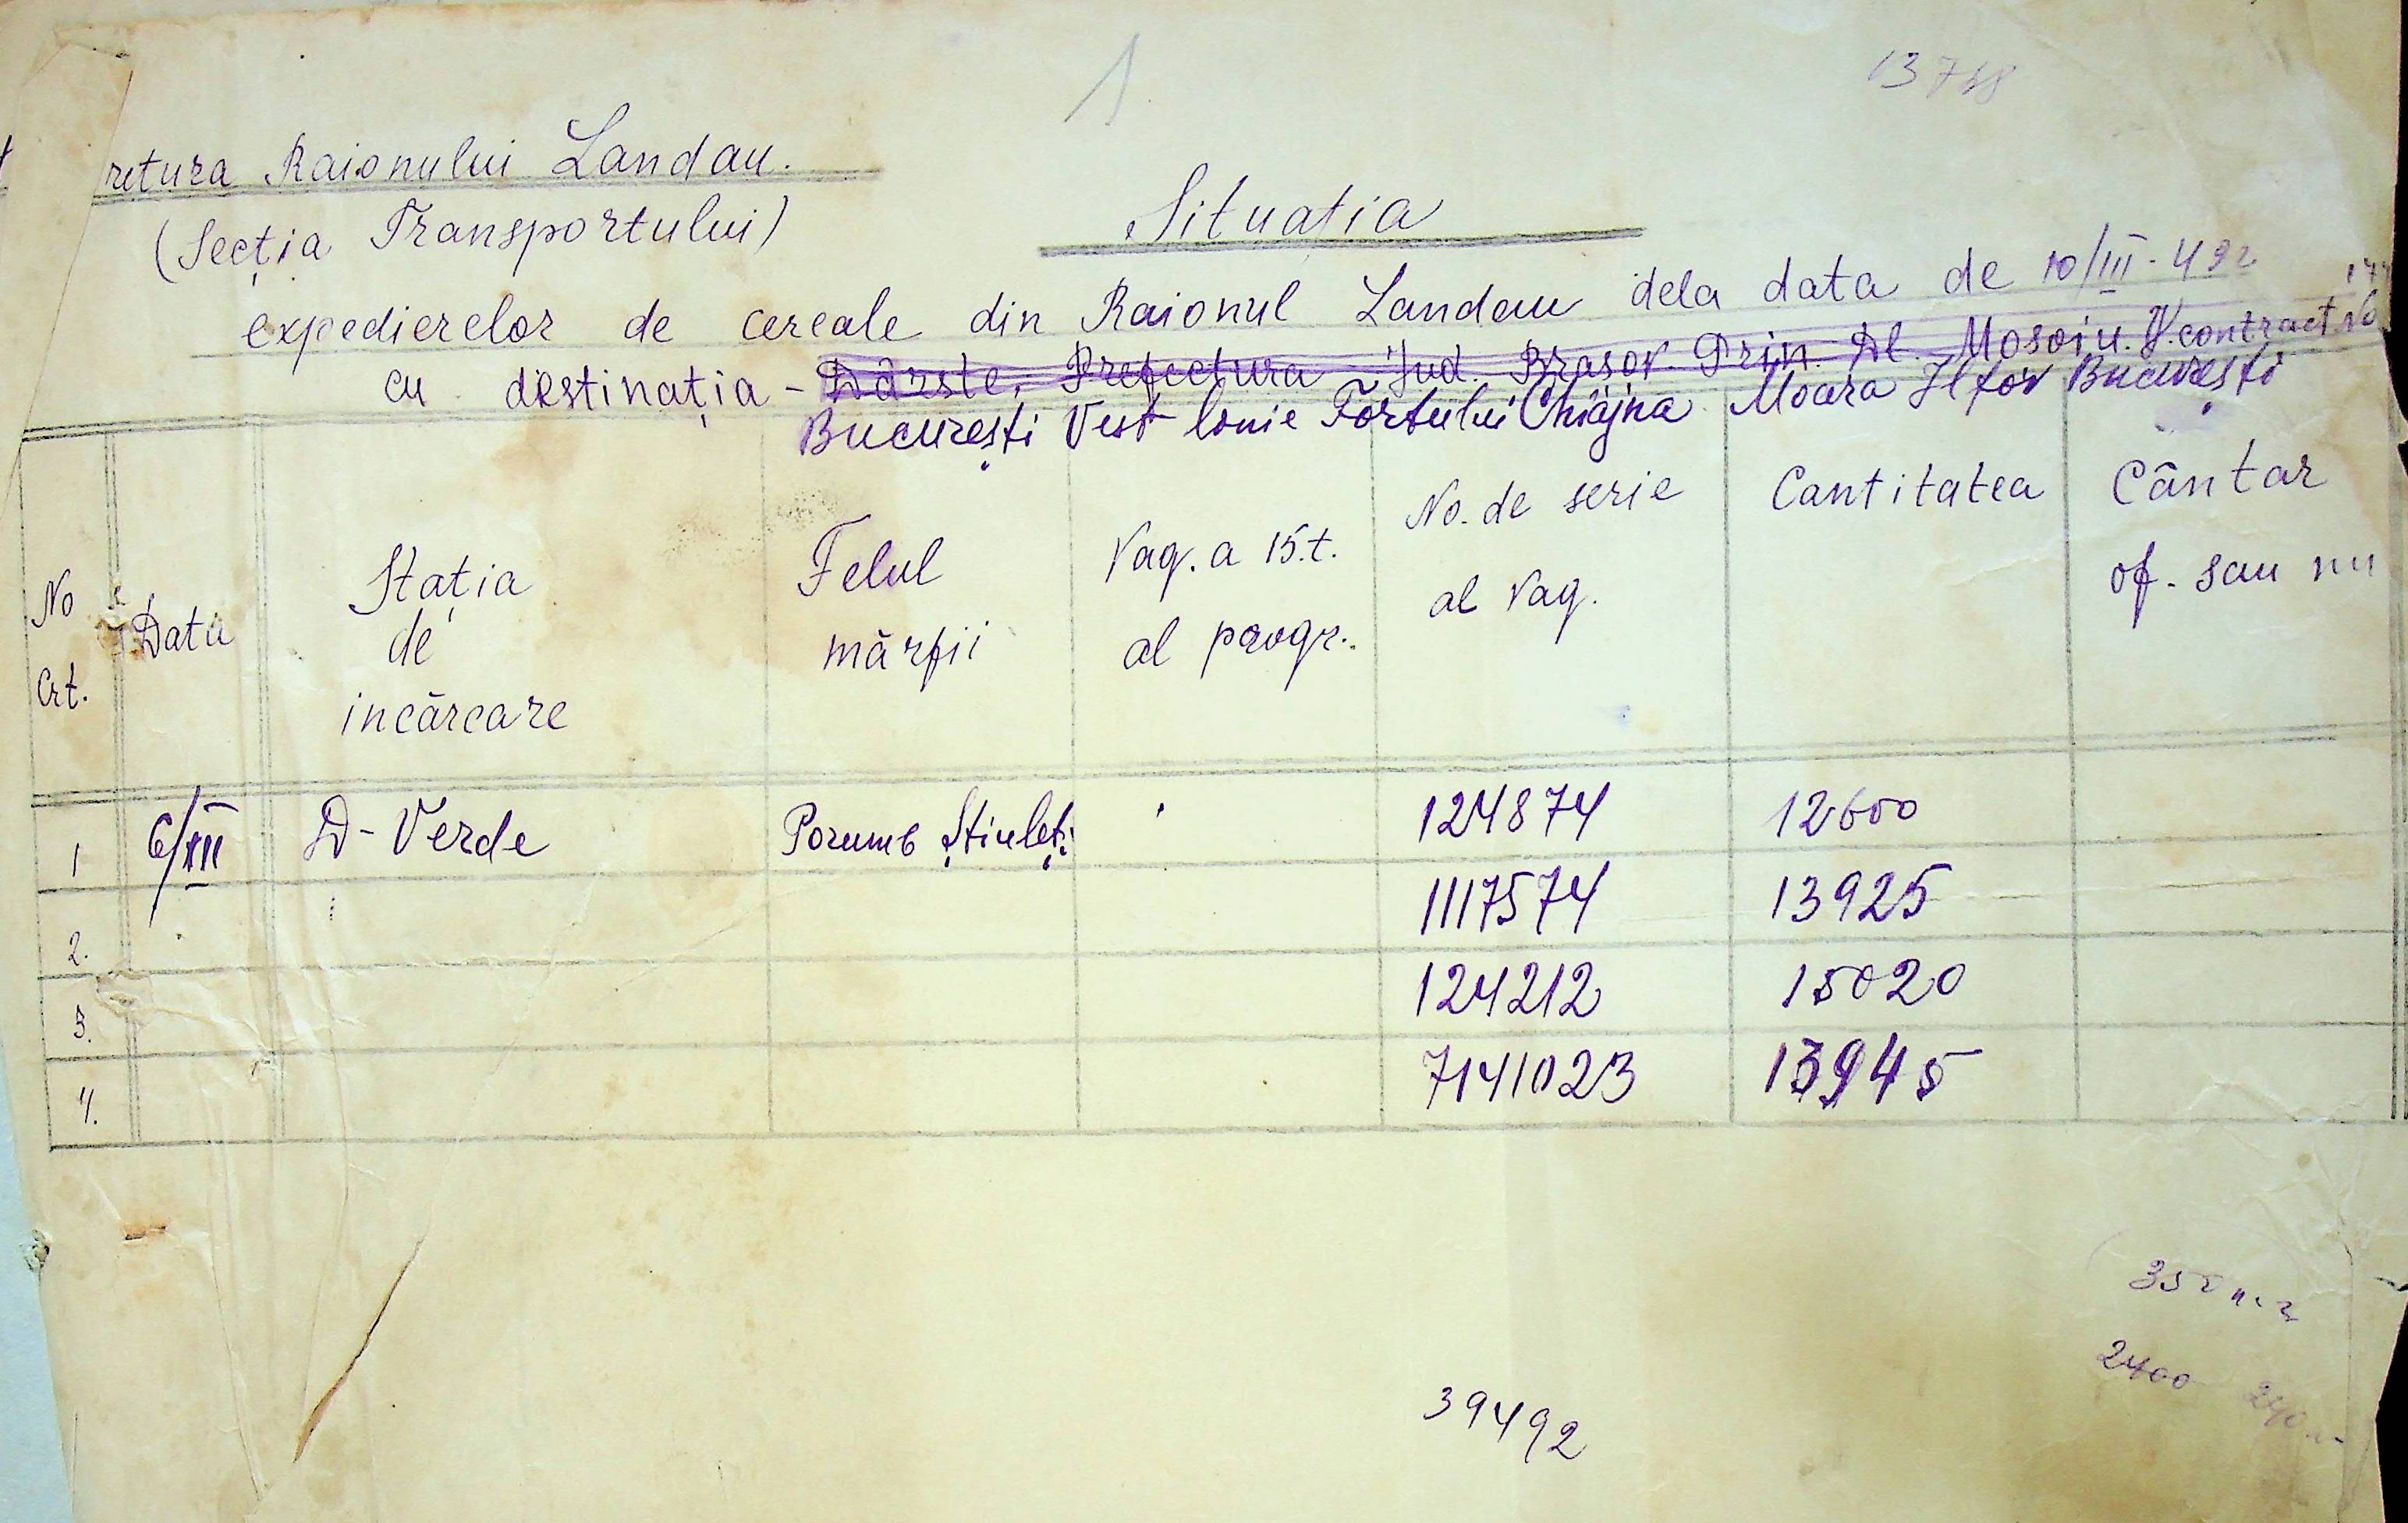 1
13748
retura Raionului Landau.
(Secția Transportului)
Situația
expedierelor de cereale din Raionul Landau dela data de 10/III-492
cu destinația - Dârste, Prefectura Jud. Brașov. Prin Dl. Mosoiu. V. contract No
București Vest linie Fortului Chiajna Moara Ilfov București
No Crt. Data Stația de incărcare Felul mărfii Vag. a 15.t. al progr. No. de serie al Vag. Cantitatea Cântar of. sau nu
1 6/XII D-Verde Porumb Știuleți 124874 12600
2. 1117574 13925
3. 124212 15020
4. 7141023 13945
39492
2400